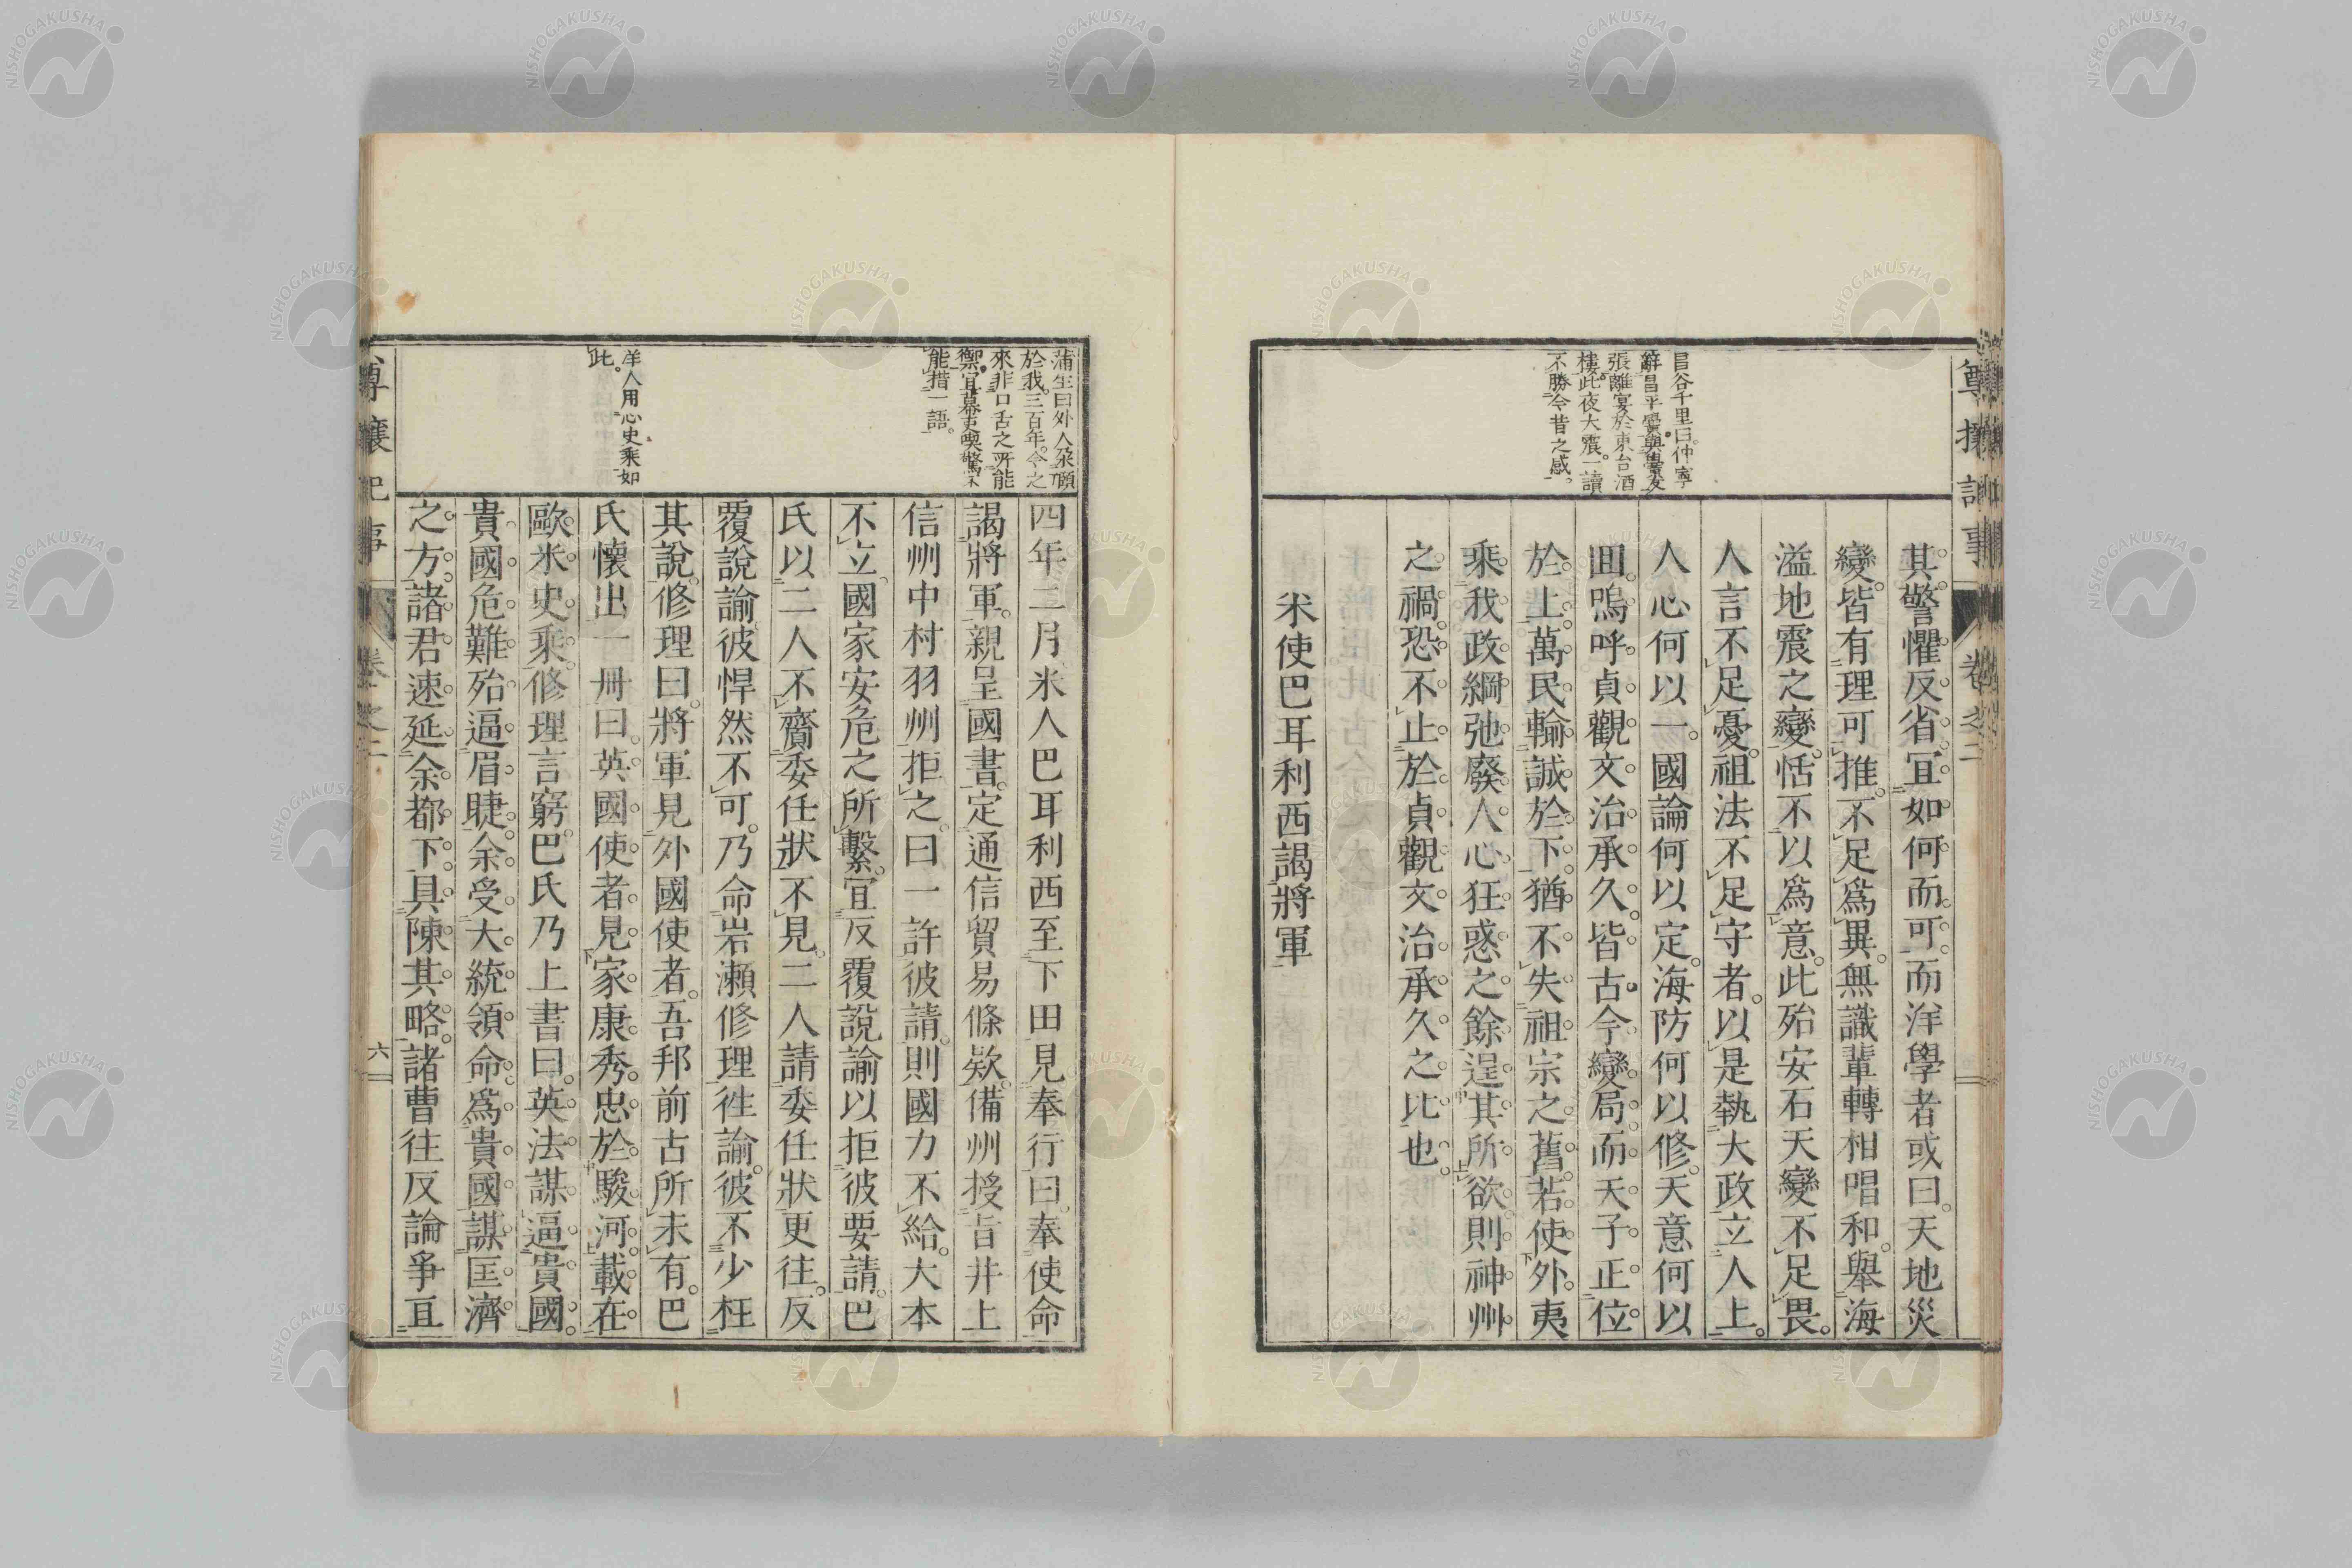 尊攘記事
卷之二
昌谷千里曰仲寧
辭昌平黌與舊友
張離宴於東台酒
樓此夜大震一讀
不勝今昔之感
其警懼反省宜如何而可而洋學者或曰天地災
變皆有理可推不足爲異無識輩轉相唱和舉海
溢地震之變恬不以爲意此殆安石天變不足畏
人言不足憂祖法不足守者以是執大政立人上
人心何以一國論何以定海防何以修天意何以
囬嗚呼貞觀文治承久皆古今變局而天子正位
於上萬民輸誠於下猶不失祖宗之舊若使外夷
乘我政綱弛廢人心狂惑之餘逞其所欲則神州
之禍恐不止於貞觀文治承久之比也
米使巴耳利西謁將軍
蒲生曰外人朶頤
於我三百年今之
來非口舌之所能
禦宜幕吏喫驚不
能措一語
洋人用心史乘如
此
四年二月米人巴耳利西至下田見奉行曰奉使命
謁將軍親呈國書定通信貿易條欵備州授旨井上
信州中村羽州拒之曰一許彼請則國力不給大本
不立國家安危之所繫宜反覆說諭以拒彼要請巴
氏以二人不齎委任狀不見二人請委任狀更往反
覆說諭彼悍然不可乃命岩瀨修理徃諭彼不少枉
其說修理曰將軍見外國使者吾邦前古所未有巴
氏懷出一冊曰英國使者見家康秀忠於駿河載在
歐米史乘修理言窮巴氏乃上書曰英法謀逼貴國
貴國危難殆逼眉睫余受大統領命爲貴國謀匡濟
之方諸君速延余都下具陳其略諸曹往反論爭亘
尊攘記事
卷之二
六
NISHOGAKUSHA